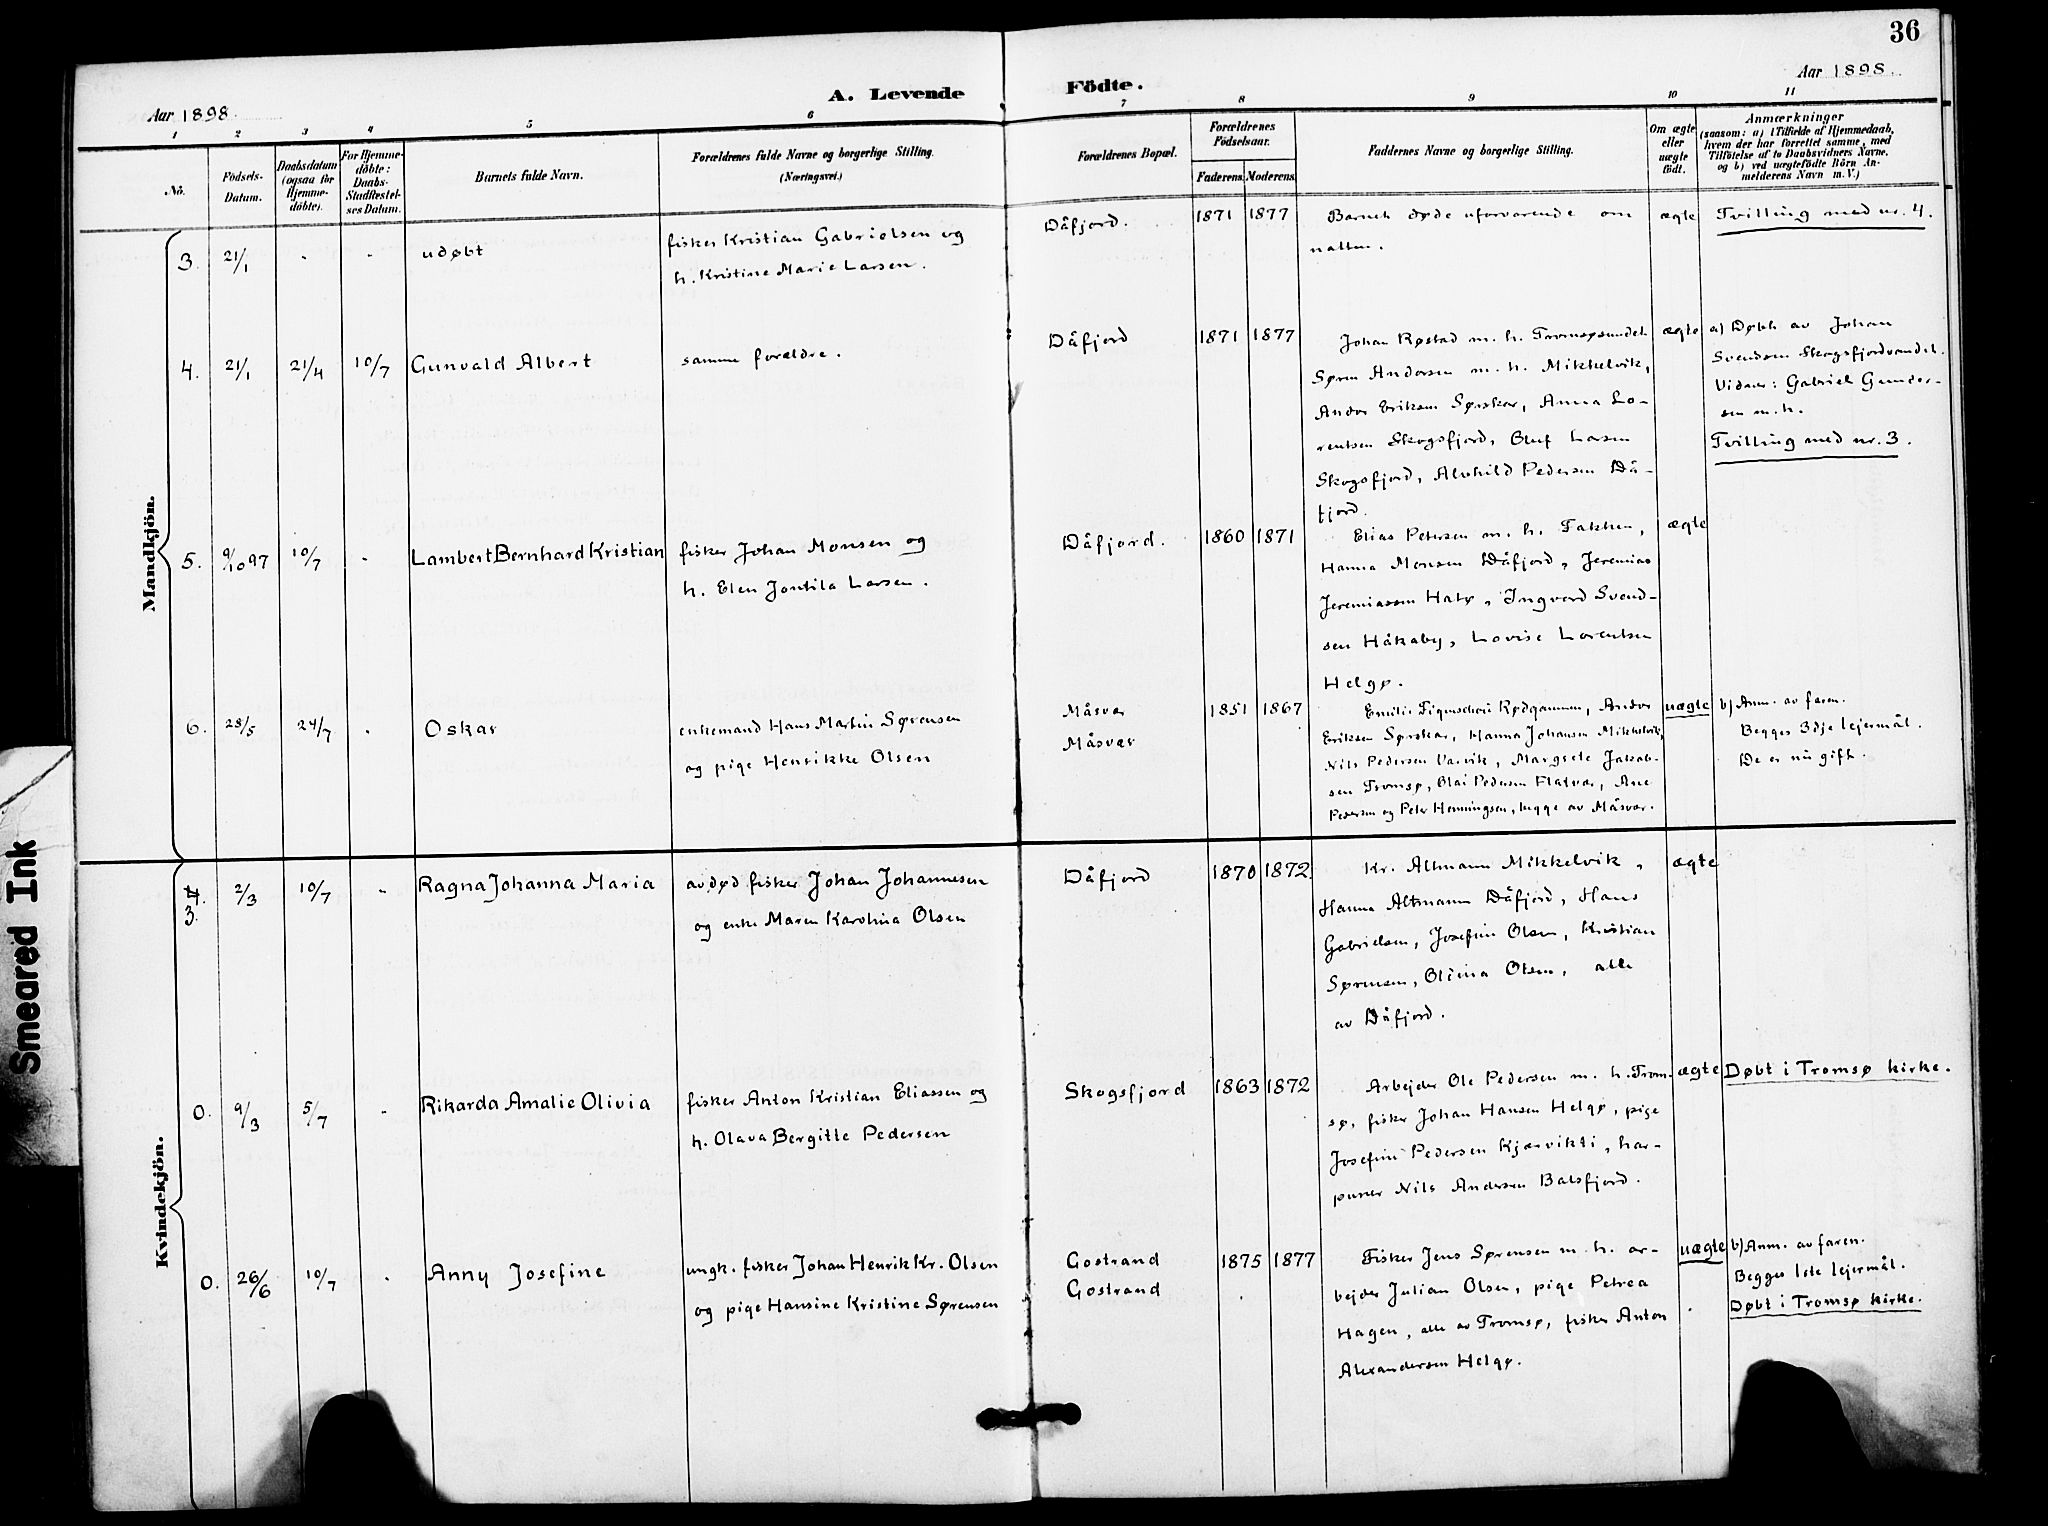 36
Aar 1898.
A. Levende Födte.
Aar 1898.
1 2 3 4 5 6 7 8 9 10 11
No.
Födsels-
Datum.
Daabsdatum
(ogsaa for
Hjemme-
döbte).
For Hjemme-
döbte:
Daabs-
Stadfæstel-
ses Datum.
Barnets fulde Navn.
Forældrenes fulde Navne og borgerlige Stilling.
(Næringsvei.)
Forældrenes Bopæl.
Forældrenes
Födselsaar.
Faderens. Moderens.
Faddernes Navne og borgerlige Stilling.
Om ægte
eller
uægte
födt.
Anmærkninger
(saasom: a) i Tilfælde af Hjemmedaab,
hvem der har forrettet samme, med
Tilföielse af to Daabsvidners Navne,
og b) ved uægtefödte Börn An-
melderens Navn m. V.)
Mandkjön.
3. 21/1 - - udøbt
fisker Kristian Gabrielsen og
h. Kristine Marie Larsen.
Dåfjord. 1871 1877
Barnet døde uforvarende om
natten.
ægte
Tvilling med nr. 4.
4. 21/1 21/4 10/7 Gunvald Albert
samme forældre.
Dåfjord 1871 1877
Johan Røstad m. h. Tromsøsundet
Søren Andersen m. h. Mikkelvik,
Andor Eriksen Sørskar, Anna Lo-
rentsen Skogsfjord, Oluf Larsen
Skogsfjord, Alvhild Pedersen Då-
fjord.
ægte
a) Døbt av Johan
Svendsen Skogsfjordvandet.
Vidner: Gabriel Gunder-
sen m. h.
Tvilling med nr. 3.
5. 9/10 97 10/7 - Lambert Bernhard Kristian
fisker Johan Monsen og
h. Elen Jontila Larsen.
Dåfjord. 1860 1871
Elias Petersen m. h. Takken,
Hanna Monsen Dåfjord, Jeremias
Jeremiassen Hatø, Ingvard Svend-
sen Håkaby, Lovise Lorentsen
Helgø.
ægte
6. 28/5 24/7 - Oskar
enkemand Hans Martin Sørensen
og pige Henrikke Olsen
Måsvær
Måsvær
1851 1867
Emilie Rødgammen, Andor
Eriksen Sørskar, Hanna Johansen Mikkelvik,
Nils Pedersen Vasvik, Margrete Jakob-
sen Tromsø, Olai Pedersen Flatvær, Ane
Pedersen og Peter Henningsen, begge av Måsvær.
uægte
b) Anm. av faren.
Begges 3dje lejermål.
De er nu gift.
Kvindekjön.
4.
3.
2/3 10/7 - Ragna Johanna Maria
avdød fisker Johan Johannesen
og enke Maren Karolina Olsen
Dåfjord 1870 1872
Kr. Altmann Mikkelvik,
Hanna Altmann Dåfjord, Hans
Gabrielsen, Josefine Olsen, Kristian
Sørensen, Olina Olsen, alle
av Dåfjord.
ægte
0. 9/3 5/7 - Rikarda Amalie Olivia
fisker Anton Kristian Eliassen og
h. Olava Bergitte Pedersen
Skogsfjord 1863 1872
Arbejder Ole Pedersen m. h. Trom-
sø, fisker Johan Hansen Helgø, pige
Josefine Pedersen Kjærvikti, har-
puner Nils Andersen Balsfjord.
ægte
Døbt i Tromsø kirke.
0. 26/6 10/7 - Anny Josefine
ungk. fisker Johan Henrik Kr. Olsen
og pige Hansine Kristine Sørensen
Gostrand
Gostrand
1875 1877
Fisker Jens Sørensen m. h. ar-
bejder Julian Olsen, pige Petrea
Hagen, alle av Tromsø, fisker Anton
Alexandersen Helgø.
uægte
b) Anm. av faren.
Begges 1ste lejermål.
Døbt i Tromsø kirke.
Smeared Ink